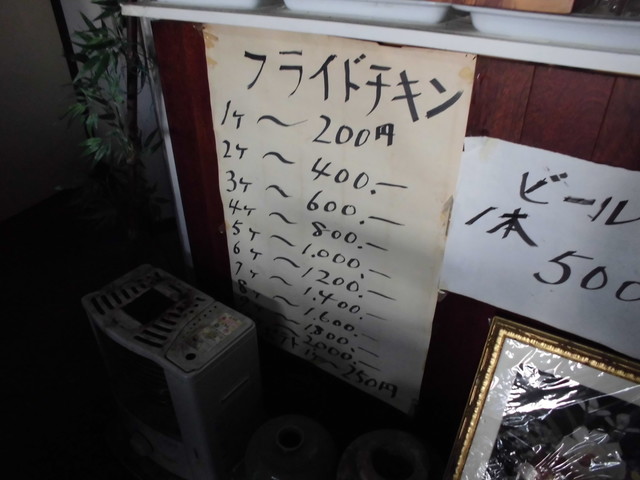 フライドチキン
1ヶ〜200円
2ヶ〜400.—
3ヶ〜600.—
4ヶ〜800.—
5ヶ〜1.000.—
6ヶ〜1200.—
7ヶ〜1.400.—
8ヶ〜1.600.—
〜1800.—
2000.—
1ヶ〜250円
ビール
1本
500